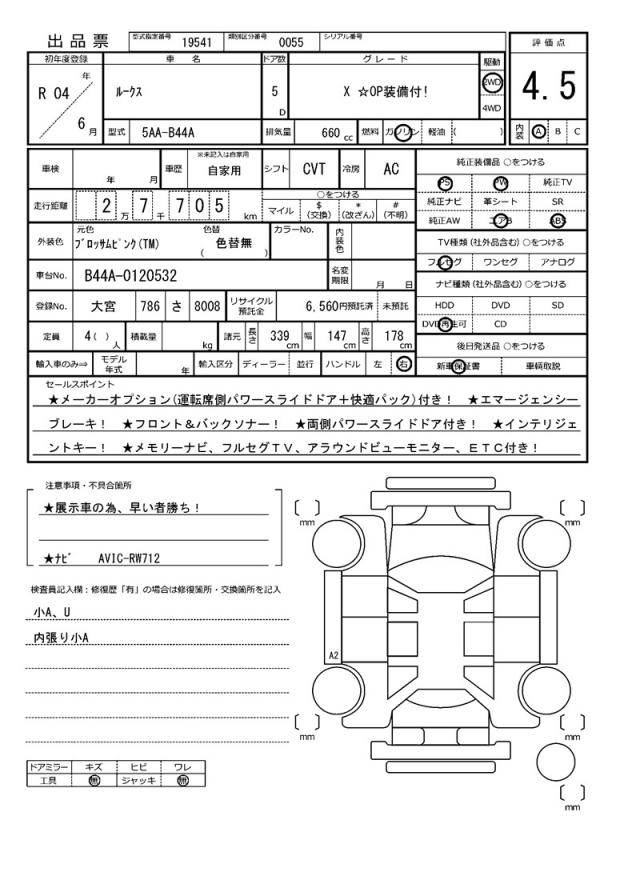 出品票 型式指定番号 19541 類別区分番号 0055 シリアル番号
評価点
4.5
内装 A B C
初年度登録 車名 ドア数 グレード 駆動
R 04 年 6 月 ルークス 5 D X ☆OP装備付! 2WD 4WD
型式 5AA-B44A 排気量 660 cc 燃料 ガソリン 軽油 ( )
車検 年 月 車歴 ※未記入は自家用 自家用 シフト CVT 冷房 AC
走行距離 2 7 7 0 5 万 千 km
○をつける
マイル $ (交換) * (改ざん) # (不明)
外装色 元色 ブロッサムピンク(TM) 色替 色替無 ( ) カラーNo. 内装色
車台No. B44A-0120532 名変期限 月 日
登録No. 大宮 786 さ 8008 リサイクル預託金 6,560円預託済 未預託
定員 4 ( ) 人 積載量 kg 諸元 長さ 339 cm 幅 147 cm 高さ 178 cm
輸入車のみ⇒ モデル年式 年 輸入区分 ディーラー 並行 ハンドル 左 右
純正装備品 ○をつける
PS PW 純正TV
純正ナビ 革シート SR
純正AW エアB ABS
TV種類(社外品含む) ○をつける
フルセグ ワンセグ アナログ
ナビ種類(社外品含む) ○をつける
HDD DVD SD
DVD再生可 CD
後日発送品 ○をつける
新車保証書 車輌取説
セールスポイント
★メーカーオプション(運転席側パワースライドドア+快適パック)付き! ★エマージェンシー
ブレーキ! ★フロント&バックソナー! ★両側パワースライドドア付き! ★インテリジェ
ントキー! ★メモリーナビ、フルセグTV、アラウンドビューモニター、ETC付き!
注意事項・不具合箇所
★展示車の為、早い者勝ち!
★ナビ AVIC-RW712
検査員記入欄:修復歴「有」の場合は修復箇所・交換箇所を記入
小A、U
内張り小A
ドアミラー キズ ヒビ ワレ
工具 無 ジャッキ 無
mm
mm
A2
mm
mm
mm